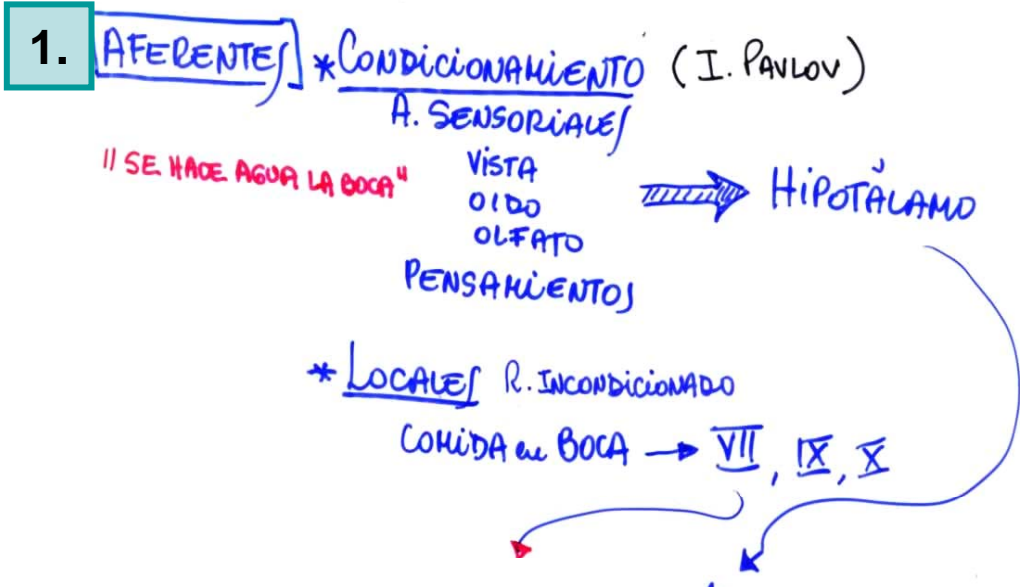 1. AFERENTES * CONDICIONAMIENTO (I. PAVLOV)
A. SENSORIALES
"SE HACE AGUA LA BOCA" VISTA
OIDO
OLFATO
HIPOTÁLAMO
PENSAMIENTOS
* LOCALES R. INCONDICIONADO
COMIDA en BOCA → VII, IX, X